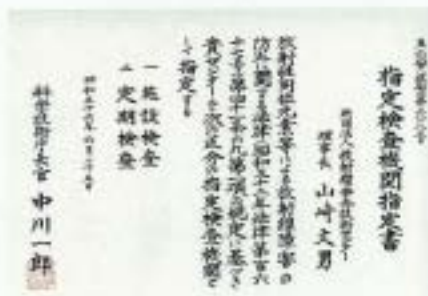 指定検査機関指定書
財団法人放射線安全技術センター
理事長 山崎文男
放射性同位元素等による放射線障害の
防止に関する法律(昭和三十二年法律第百六
十七号)第四十一条の九第一項の規定に基づき
貴センターを次の区分の指定検査機関と
して指定する
一 施設検査
二 定期検査
昭和五十六年
科学技術庁長官 中川一郎